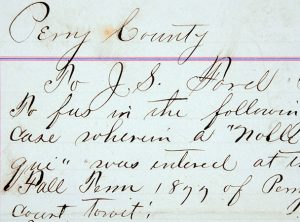 Perry County
To J. S. Ford
To fees in the followin
case wherein a "Nolle
qui" was intered at t
Fall Term 1877 of Perry
court towit;